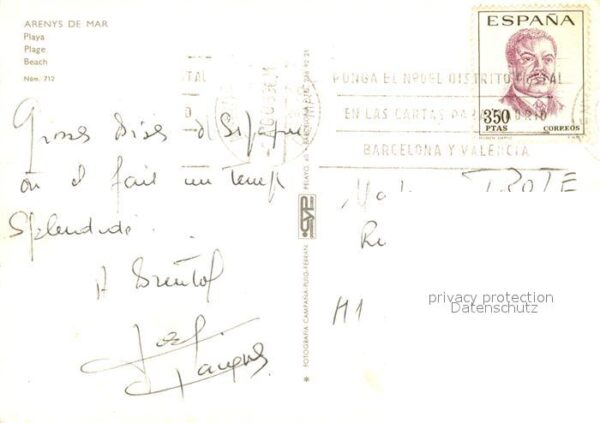 ARENYS DE MAR
Playa
Plage
Beach
Núm. 712
ESPAÑA
3'50
PTAS
CORREOS
PONGA EL Nº DEL DISTRITO POSTAL
EN LAS CARTAS PARA MADRID
BARCELONA Y VALENCIA
Grosses Bises d'Espagne
où il fait un temps
splendide.
A Bientôt
FOTOGRAFIA CAMPAÑA-PUIG FERRAN
CYP
M
TROTE
R
M1
privacy protection
Datenschutz